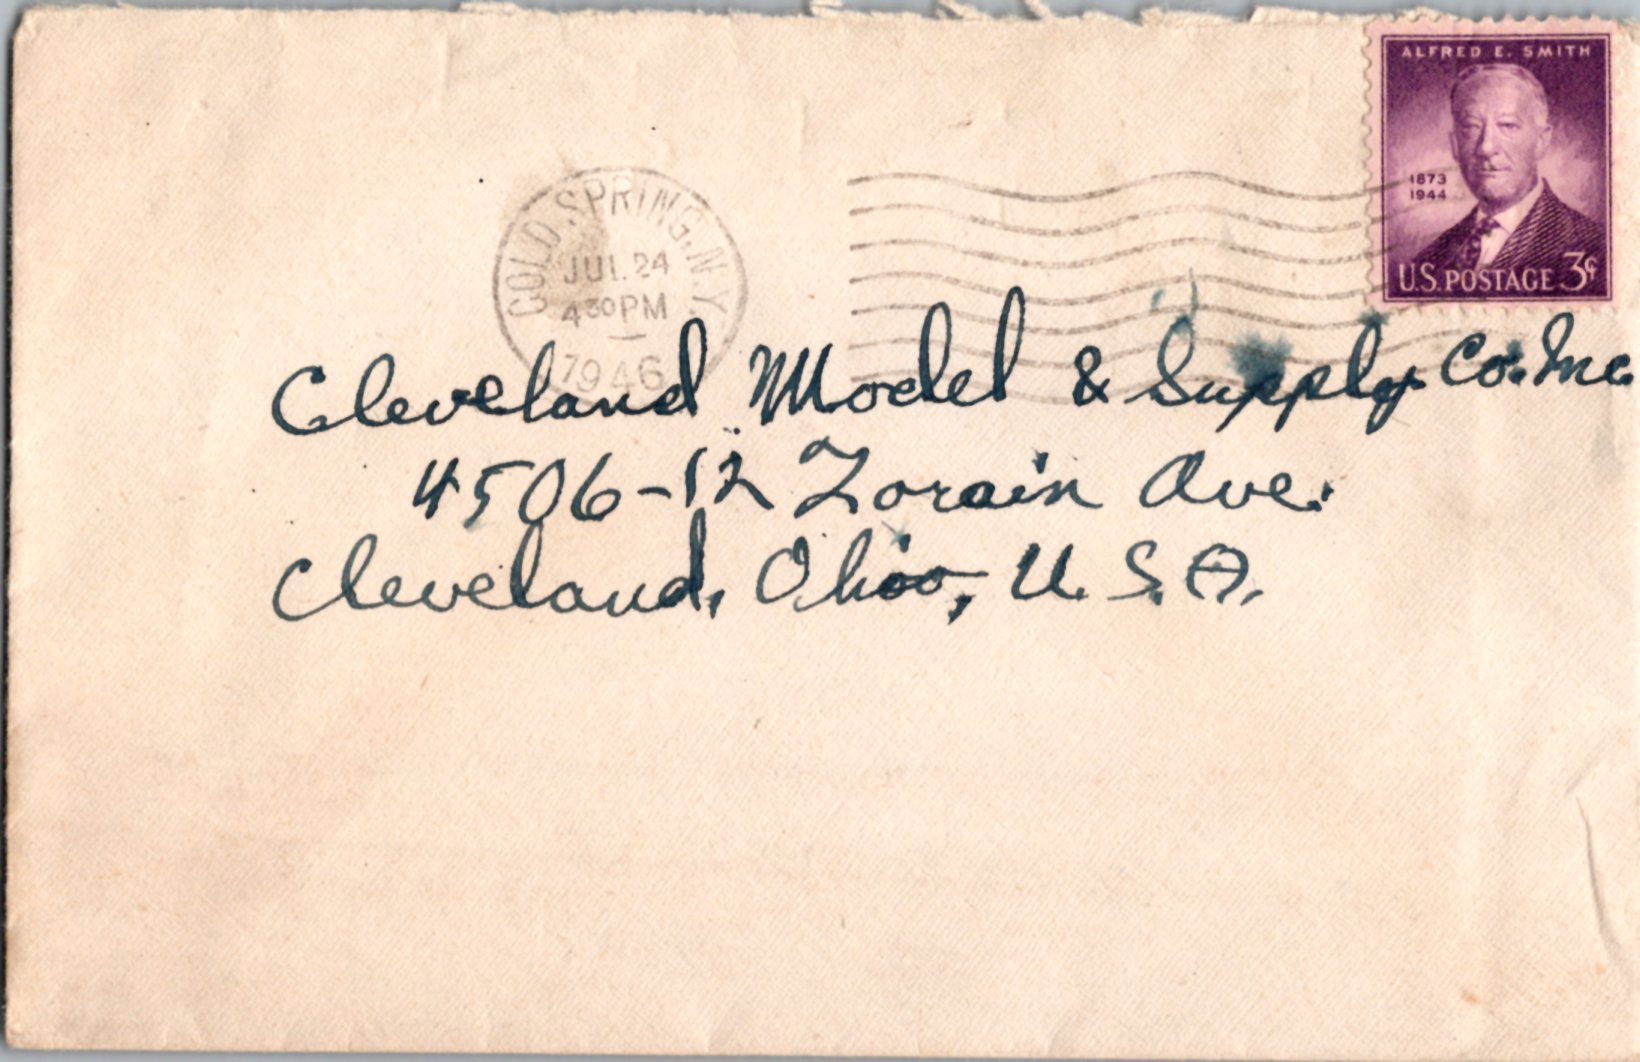 ALFRED E. SMITH
1873
1944
U.S. POSTAGE 3¢
COLD SPRING, N.Y.
JUL 24
4 30 PM
1946
Cleveland Model & Supply Co. Inc.
4506-12 Lorain Ave.
Cleveland, Ohio, U. S. A.